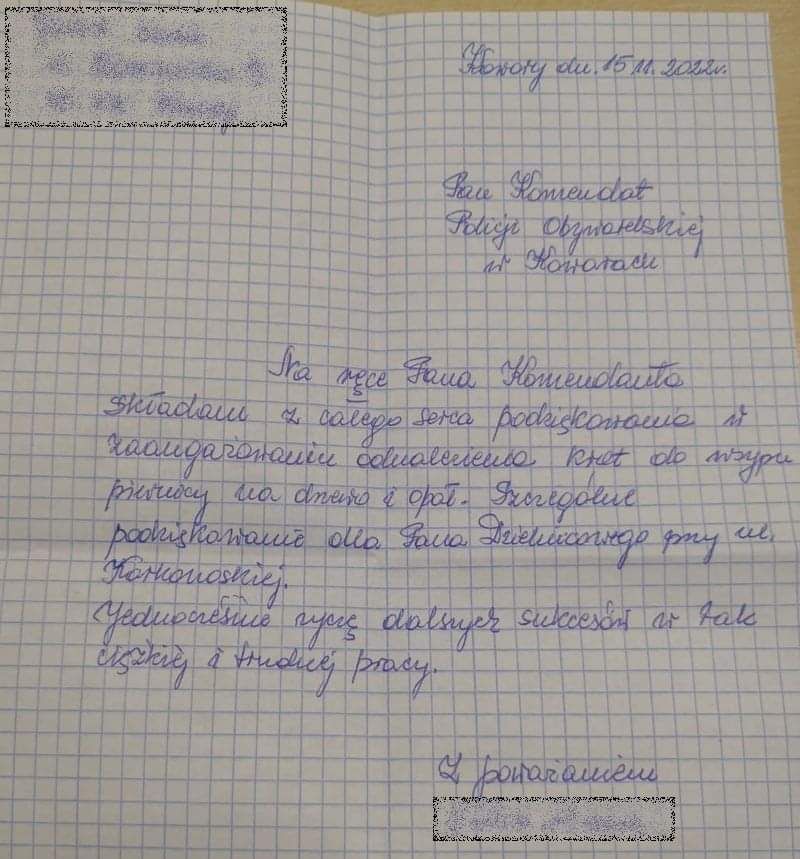 Kowary dn. 15.11.2022r.
Pan Komendat
Policji Obywatelskiej
w Kowarach
Na ręce Pana Komendanta
składam z całego serca podziękowania w
zaangażowaniu odnalezienia krat do wsypu
piwnicy na drewno i opał. Szczególne
podziękowanie dla Pana Dzielnicowego przy ul.
Karkonoskiej.
Jednocześnie życzę dalszych sukcesów w tak
ciężkiej i trudnej pracy.
Z poważaniem